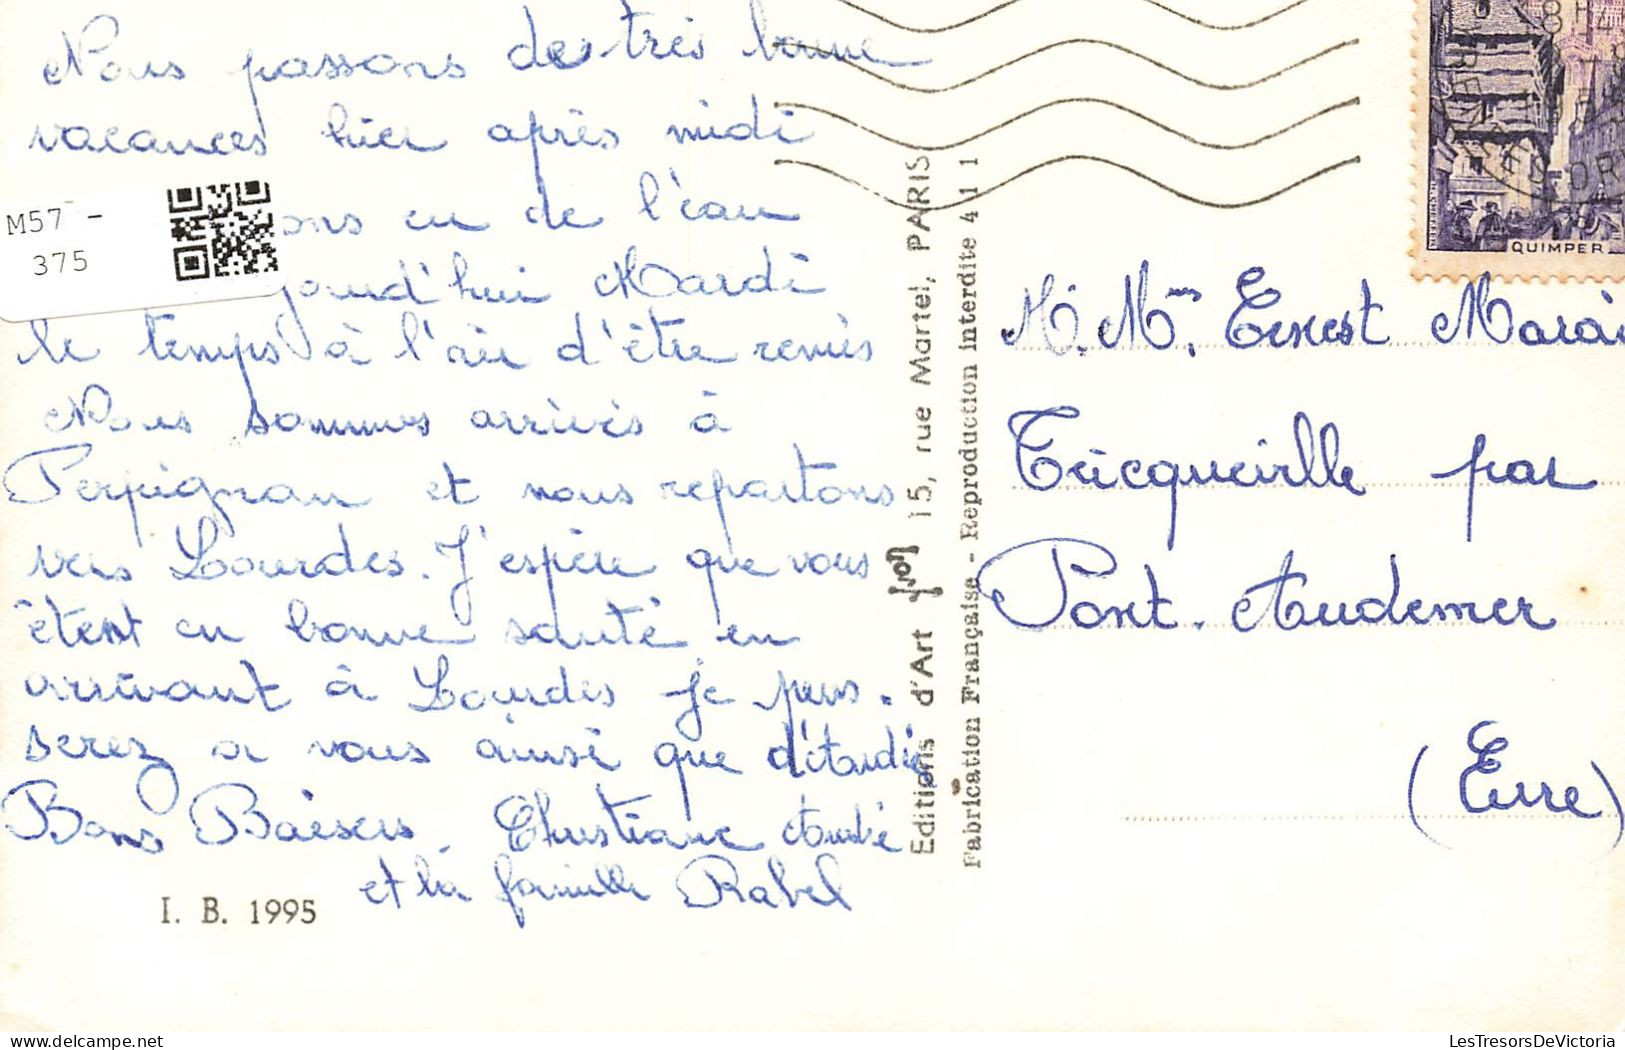 Nous passons de très bonne
vacances hier après midi
ons eu de l'eau
jourd'hui Mardi
le temps à l'air d'être remis
Nous sommes arrivés à
Perpignan et nous repartons
vers Lourdes. J'espère que vous
êtent en bonne santé en
arrivant à Lourdes je pens.
serez a vous ainsi que
Bons Baisers. Christiane André
et la famille Rabel
I. B. 1995
M57 -
375
Editions d'Art Yvon 15, rue Martel, PARIS
Fabrication Française - Reproduction interdite 4 1 1
QUIMPER
M. Mme. Ernest Marai
Tricqueville par
Pont-Audemer
(Eure)
LesTresorsDeVictoria